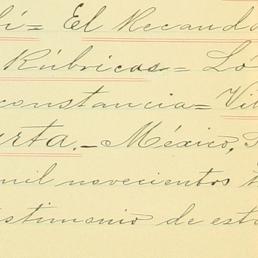 = El Recauda
Rúbricas = Ló
constancia = Vi
rta. - México,
mil novecientos
testimonio de est